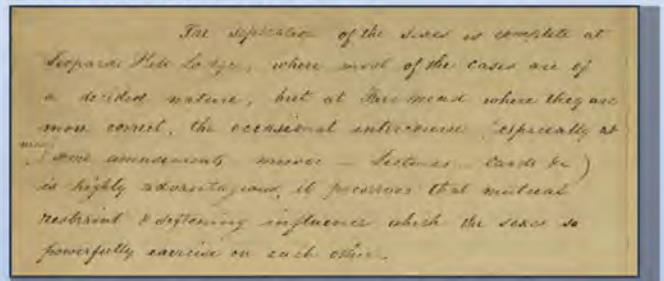 The separation of the sexes is complete at
Leopards Hill Lodge, where most of the cases are of
a decided nature, but at Fairmead where they are
more correct, the occasional intercourse (especially at
some amusements music - Lectures - Cards &c)
is highly advantageous, it preserves that mutual
restraint & softening influence which the sexes so
powerfully exercise on each other.